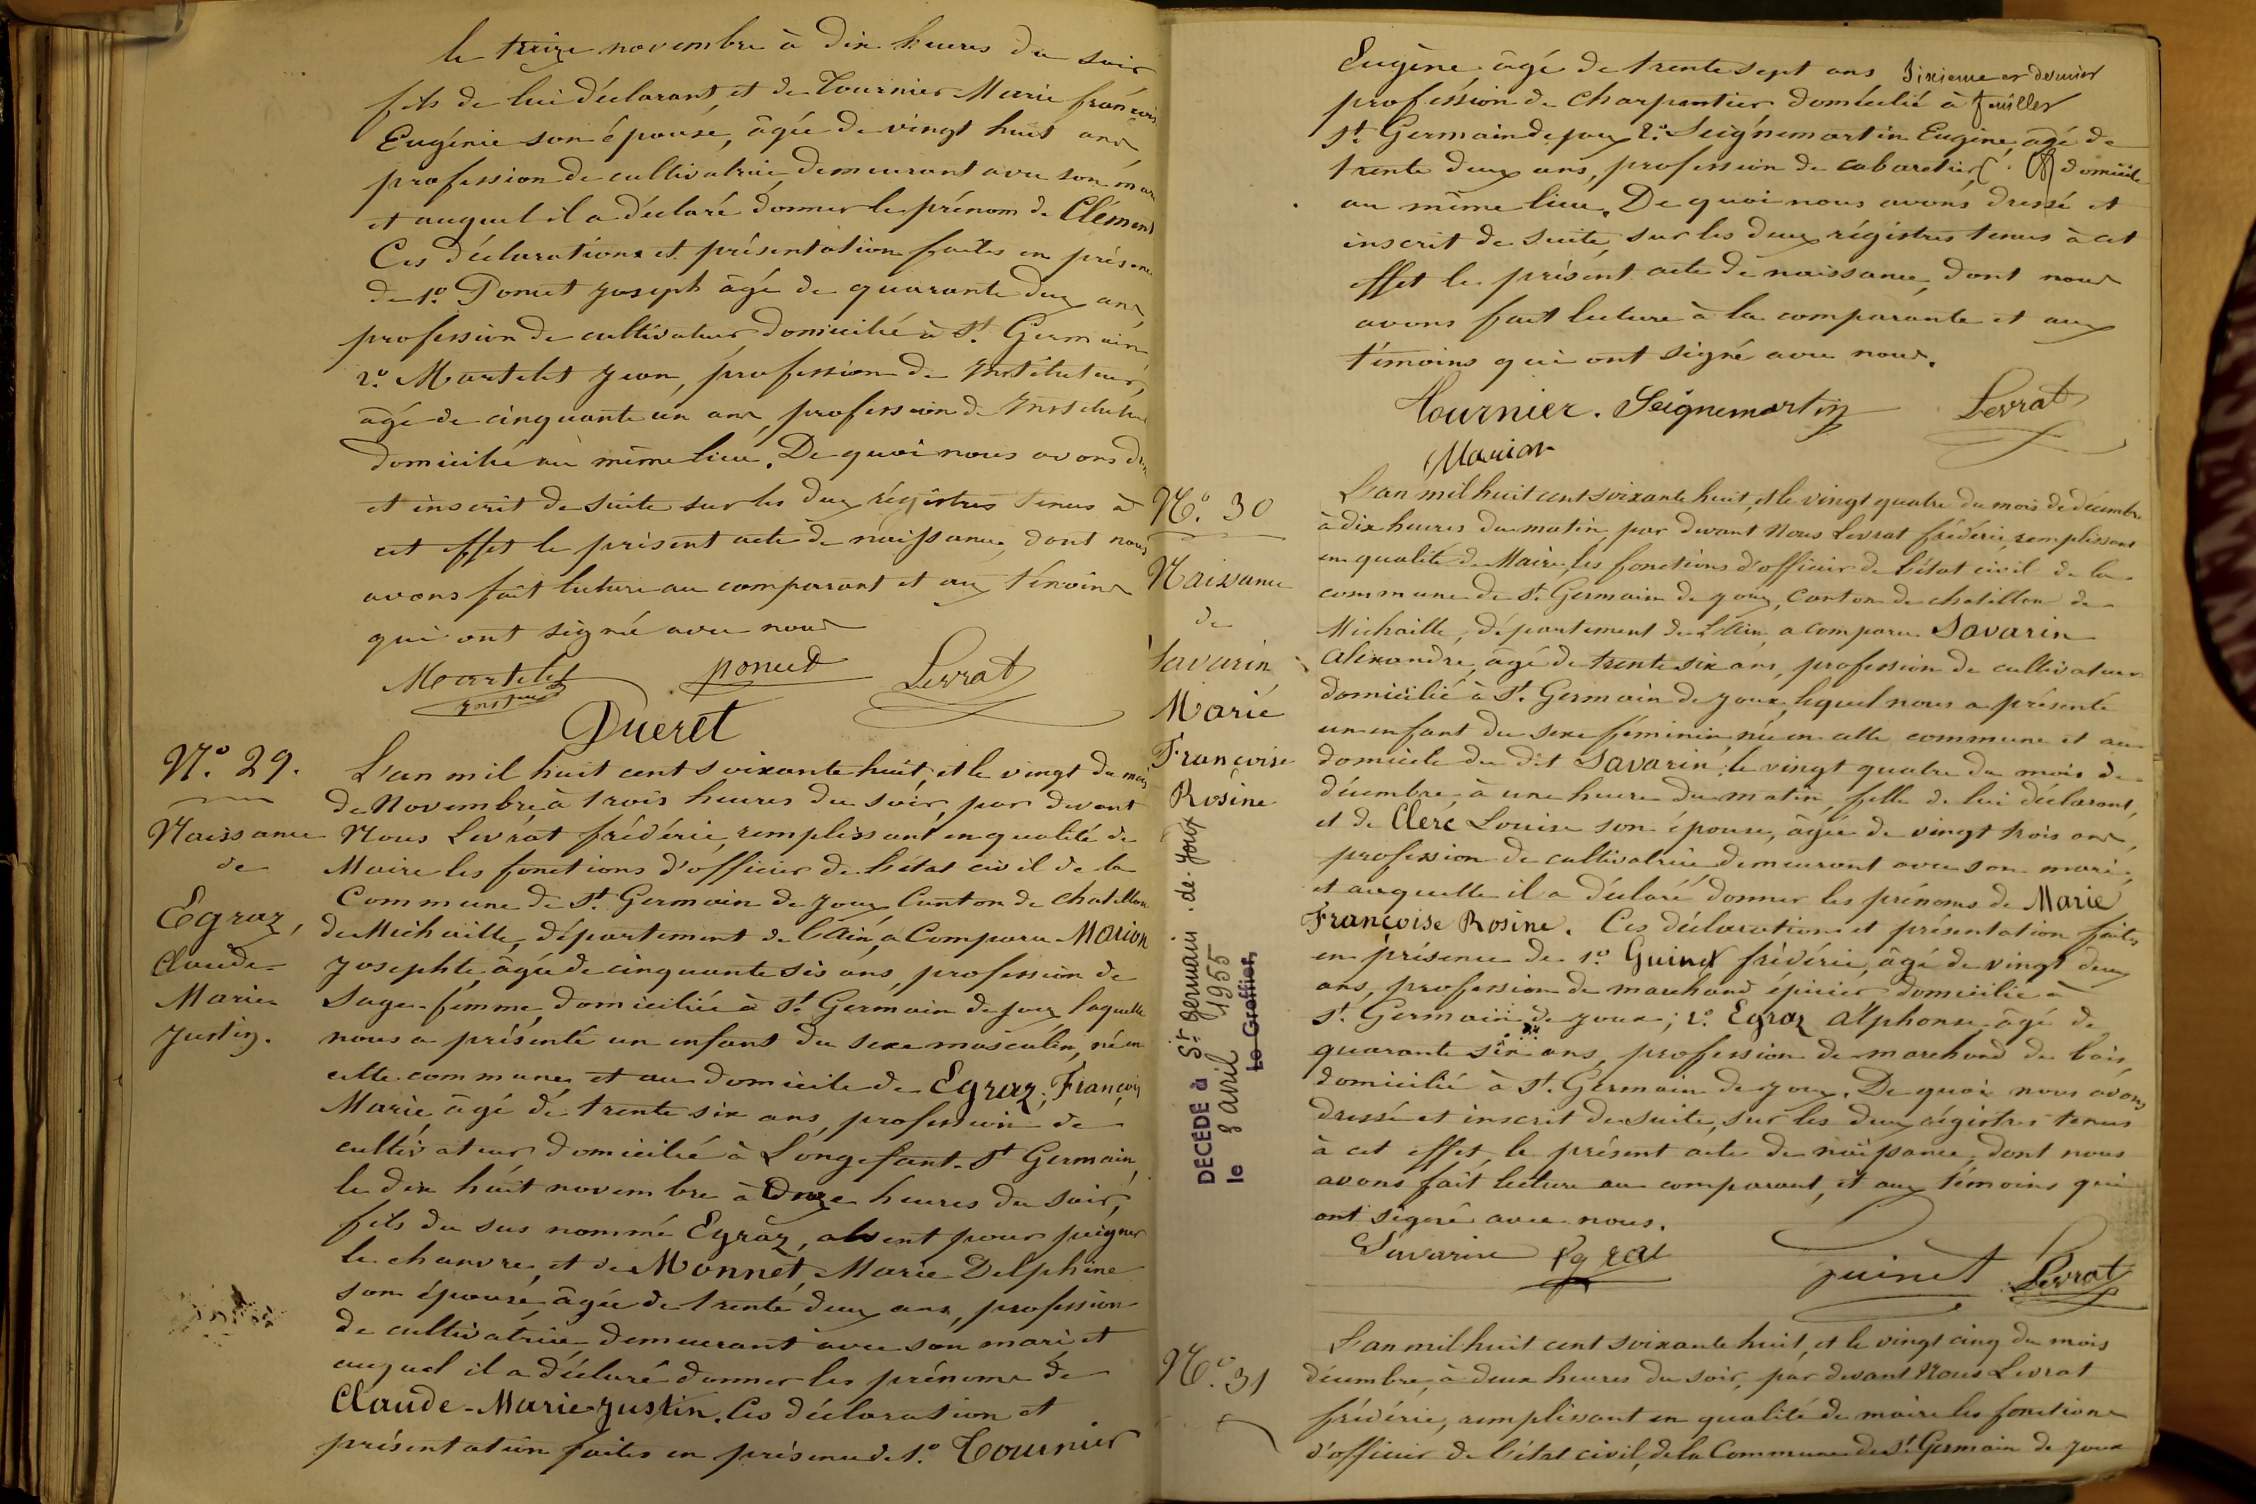 le treize novembre à dix heures du soir
fils de lui déclarant, et de Tournier Marie françois
Eugénie son épouse, âgée de vingt huit ans,
profession de cultivatrice, demeurant avec son mari
et auquel il a déclaré donner le prénom de Clément
Ces déclarations et présentation faites en présence
de 1.º Poncet Joseph âgé de quarante deux ans,
profession de cultivateur, domicilié à St. Germain
2.º Martelet Jean, profession de Instituteur,
âgé de cinquante un ans, profession de Instituteur
domicilié au même lieu. De quoi nous avons
et inscrit de suite sur les deux régistres tenus à
cet effet le présent acte de naissance, dont nous
avons fait lecture au comparant et aux témoins
qui ont signé avec nous
Martelet poncet Levrat
Ducret
N.º 29.
Naissance
de
Egraz,
Claude-
Marie
Justin.
L'an mil huit cent soixante huit, et le vingt du mois
de Novembre, à trois heures du soir, par devant
Nous Levrat frédéric, remplissant en qualité de
Maire les fonctions d'officier de l'état civil de la
Commune de St. Germain de Joux Canton de Chatillon
de Michaille, département de l'Ain, a Comparu Marion
Josephte, âgée de cinquante six ans, profession de
Sage-femme, domiciliée à St. Germain de Joux laquelle
nous a présenté un enfant du sexe masculin, né en
cette commune, et au domicile de Egraz, François
Marie, âgé de trente six ans, profession de
cultivateur, domicilié à Longefant-St Germain,
le dix huit novembre à onze heures du soir,
fils du sus nommé Egraz, absent pour peigner
le chanvre, et de Monnet, Marie Delphine
son épouse, âgée de trente deux ans, profession
de cultivatrice, demeurant avec son mari, et
auquel il a déclaré donner les prénoms de
Claude-Marie-Justin. Ces déclaration et
présentation faites en présence de 1.º Tournier
Eugène, âgé de trente sept ans
Sixième et dernier
feuillet
profession de Charpentier domicilié à
St. Germain de Joux 2.º Seignemartin Eugène, âgé de
trente deux ans, profession de cabaretier domicilié
au même lieu. De quoi nous avons dressé et
inscrit de suite, sur les deux régistres tenus à cet
effet le présent acte de naissance, dont nous
avons fait lecture à la comparante et aux
témoins qui ont signé avec nous.
Tournier. Seignemartin Levrat
Marion
N.º 30
Naissance
de
Savarin
Marie
Françoise
Rosine
DECEDE à St germain-de-Joux
le 8 avril 1955
Le Greffier,
L'an mil huit cent soixante huit, et le vingt quatre du mois de décembre
à dix heures du matin, par devant Nous Levrat frédéric, remplissant
en qualité de Maire, les fonctions d'officier de l'état civil de la
commune de St. Germain de Joux, Canton de Chatillon de
Michaille, département de l'Ain, a comparu Savarin
Alexandre, âgé de trente six ans, profession de cultivateur
domicilié à St. Germain de Joux, lequel nous a présenté
un enfant du sexe féminin, né en cette commune et au
domicile du dit Savarin, le vingt quatre du mois de
décembre, à une heure du matin, fille de lui déclarant,
et de Clerc Louise son épouse, âgée de vingt trois ans,
profession de cultivatrice demeurant avec son mari,
et auquelle il a déclaré donner les prénoms de Marie
Françoise Rosine. Ces déclaration et présentation faites
en présence de 1.º Guinet frédéric, âgé de vingt deux
ans, profession de marchand épicier domicilié à
St. Germain de Joux; 2.º Egraz Alphonse âgé de
quarante six ans, profession de marchand de bois,
domicilié à St. Germain de Joux. De quoi nous avons
dressé et inscrit de suite, sur les deux régistres tenus
à cet effet, le présent acte de naissance, dont nous
avons fait lecture au comparant, et aux témoins qui
ont signé avec nous.
Savarin Egraz guinet Levrat
N.º 31
L'an mil huit cent soixante huit, et le vingt cinq du mois
décembre, à deux heures du soir, par devant Nous Levrat
frédéric, remplissant en qualité de maire les fonctions
d'officier de l'état civil, de la Commune de St. Germain de Joux